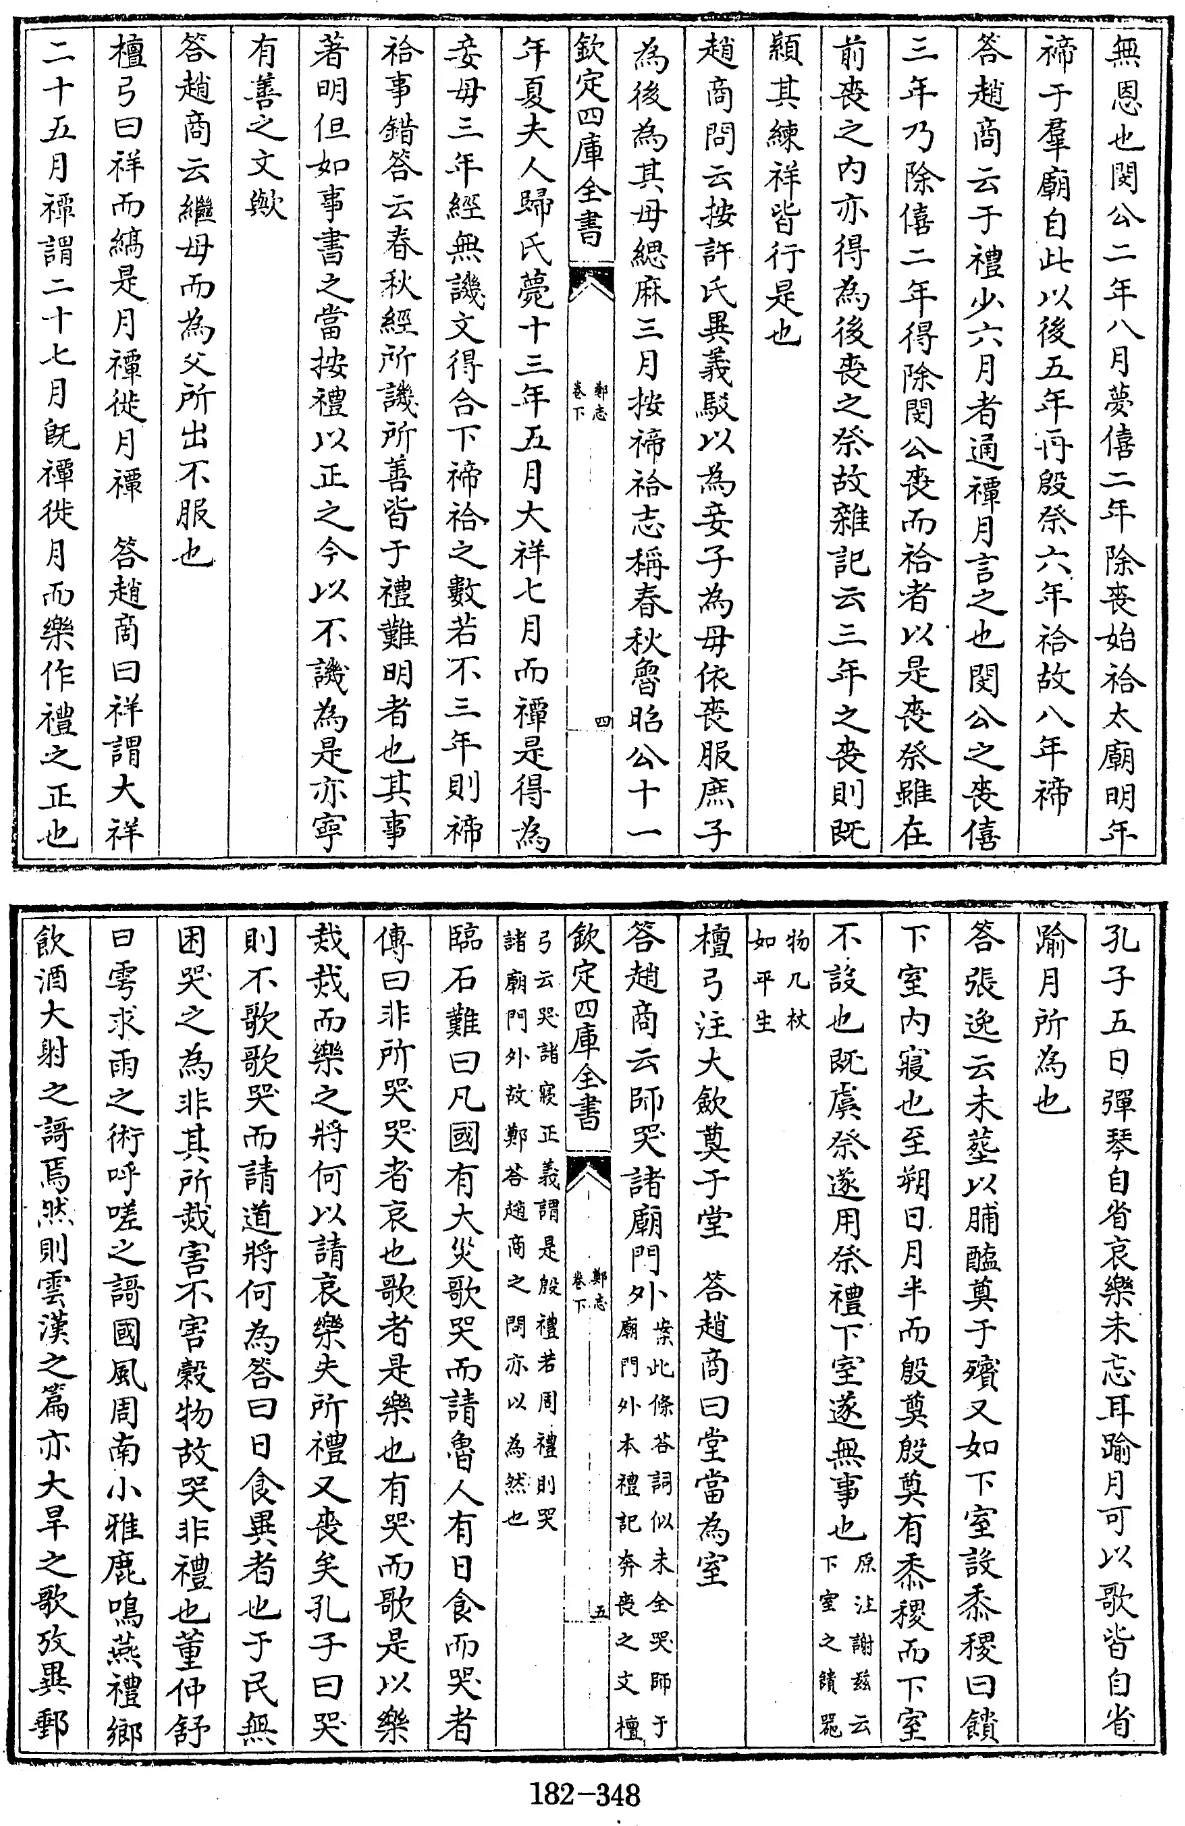 無恩也閔公二年八月薨僖二年除喪始祫太廟明年
禘于羣廟自此以後五年再殷祭六年祫故八年禘
答趙商云于禮少六月者通禫月言之也閔公之喪僖
三年乃除僖二年得除閔公喪而祫者以是喪祭雖在
前喪之内亦得為後喪之祭故雜記云三年之喪則既
顈其練祥皆行是也
趙商問云按許氏異義駁以為妾子為母依喪服庶子
為後為其母緦麻三月按禘祫志稱春秋魯昭公十一
欽定四庫全書
鄭志
卷下
四
年夏夫人歸氏薨十三年五月大祥七月而禫是得為
妾母三年經無譏文得合下禘祫之數若不三年則禘
祫事錯答云春秋經所譏所善皆于禮難明者也其事
著明但如事書之當按禮以正之今以不譏為是亦寧
有善之文歟
答趙商云繼母而為父所出不服也
檀弓曰祥而縞是月禫徙月禫　答趙商曰祥謂大祥
二十五月禫謂二十七月既禫徙月而樂作禮之正也
孔子五日彈琴自省哀樂未忘耳踰月可以歌皆自省
踰月所為也
答張逸云未塟以脯醢奠于殯又如下室設黍稷曰饋
下室内寢也至朔日月半而殷奠殷奠有黍稷而下室
不設也既虞祭遂用祭禮下室遂無事也原注謝兹云
下室之饋器
物几杖
如平生
檀弓注大斂奠于堂　答趙商曰堂當為室
答趙商云師哭諸廟門外案此條答詞似未全哭師于
廟門外本禮記奔喪之文檀
欽定四庫全書
鄭志
卷下
五
弓云哭諸寢正義謂是殷禮若周禮則哭
諸廟門外故鄭答趙商之問亦以為然也
臨石難曰凡國有大災歌哭而請魯人有日食而哭者
傳曰非所哭哭者哀也歌者是樂也有哭而歌是以樂
烖烖而樂之將何以請哀樂失所禮又喪矣孔子曰哭
則不歌歌哭而請道將何為答曰日食異者也于民無
困哭之為非其所烖害不害穀物故哭非禮也董仲舒
曰雩求雨之術呼嗟之謌國風周南小雅鹿鳴燕禮鄉
飲酒大射之謌焉然則雲漢之篇亦大旱之歌攷異郵
182-348